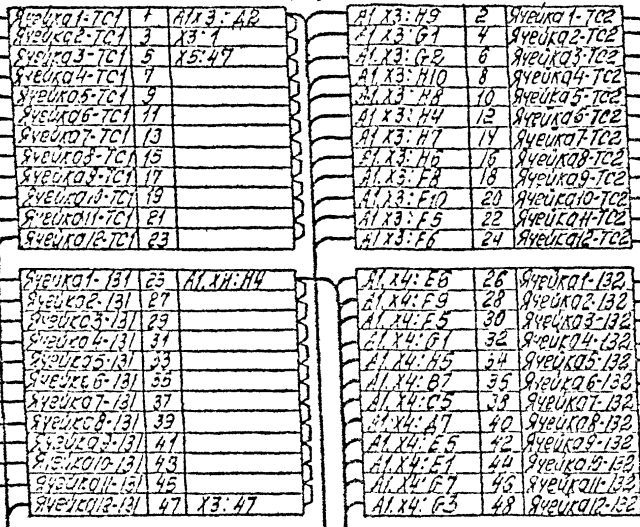 Ячейка1-ТС1 1 А1X3:Д2
Ячейка2-ТС1 3 X3:1
Ячейка3-ТС1 5 X5:47
Ячейка4-ТС1 7
Ячейка5-ТС1 9
Ячейка6-ТС1 11
Ячейка7-ТС1 13
Ячейка8-ТС1 15
Ячейка9-ТС1 17
Ячейка10-ТС1 19
Ячейка11-ТС1 21
Ячейка12-ТС1 23
А1.X3:H9 2 Ячейка1-ТС2
А1.X3:G1 4 Ячейка2-ТС2
А1.X3:G2 6 Ячейка3-ТС2
А1.X3:H10 8 Ячейка4-ТС2
А1.X3:H8 10 Ячейка5-ТС2
А1.X3:H4 12 Ячейка6-ТС2
А1.X3:H7 14 Ячейка7-ТС2
А1.X3:H6 16 Ячейка8-ТС2
А1.X3:F8 18 Ячейка9-ТС2
А1.X3:F10 20 Ячейка10-ТС2
А1.X3:F5 22 Ячейка11-ТС2
А1.X3:F6 24 Ячейка12-ТС2
Ячейка1-131 25
Ячейка2-131 27
Ячейка3-131 29
Ячейка4-131 31
Ячейка5-131 33
Ячейка6-131 35
Ячейка7-131 37
Ячейка8-131 39
Ячейка9-131 41
Ячейка10-131 43
Ячейка11-131 45
Ячейка12-131 47 X3:47
А1.X4:E6 26 Ячейка1-132
А1.X4:F9 28 Ячейка2-132
А1.X4:F5 30 Ячейка3-132
А1.X4:G1 32 Ячейка4-132
А1.X4:H5 34 Ячейка5-132
А1.X4:B7 36 Ячейка6-132
А1.X4:C5 38 Ячейка7-132
А1.X4:Д7 40 Ячейка8-132
А1.X4:E5 42 Ячейка9-132
А1.X4:E1 44 Ячейка10-132
А1.X4:G7 46 Ячейка11-132
А1.X4:G3 48 Ячейка12-132